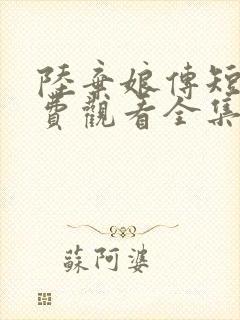 陸棄娘傳短
費觀看全集
蘇阿婆